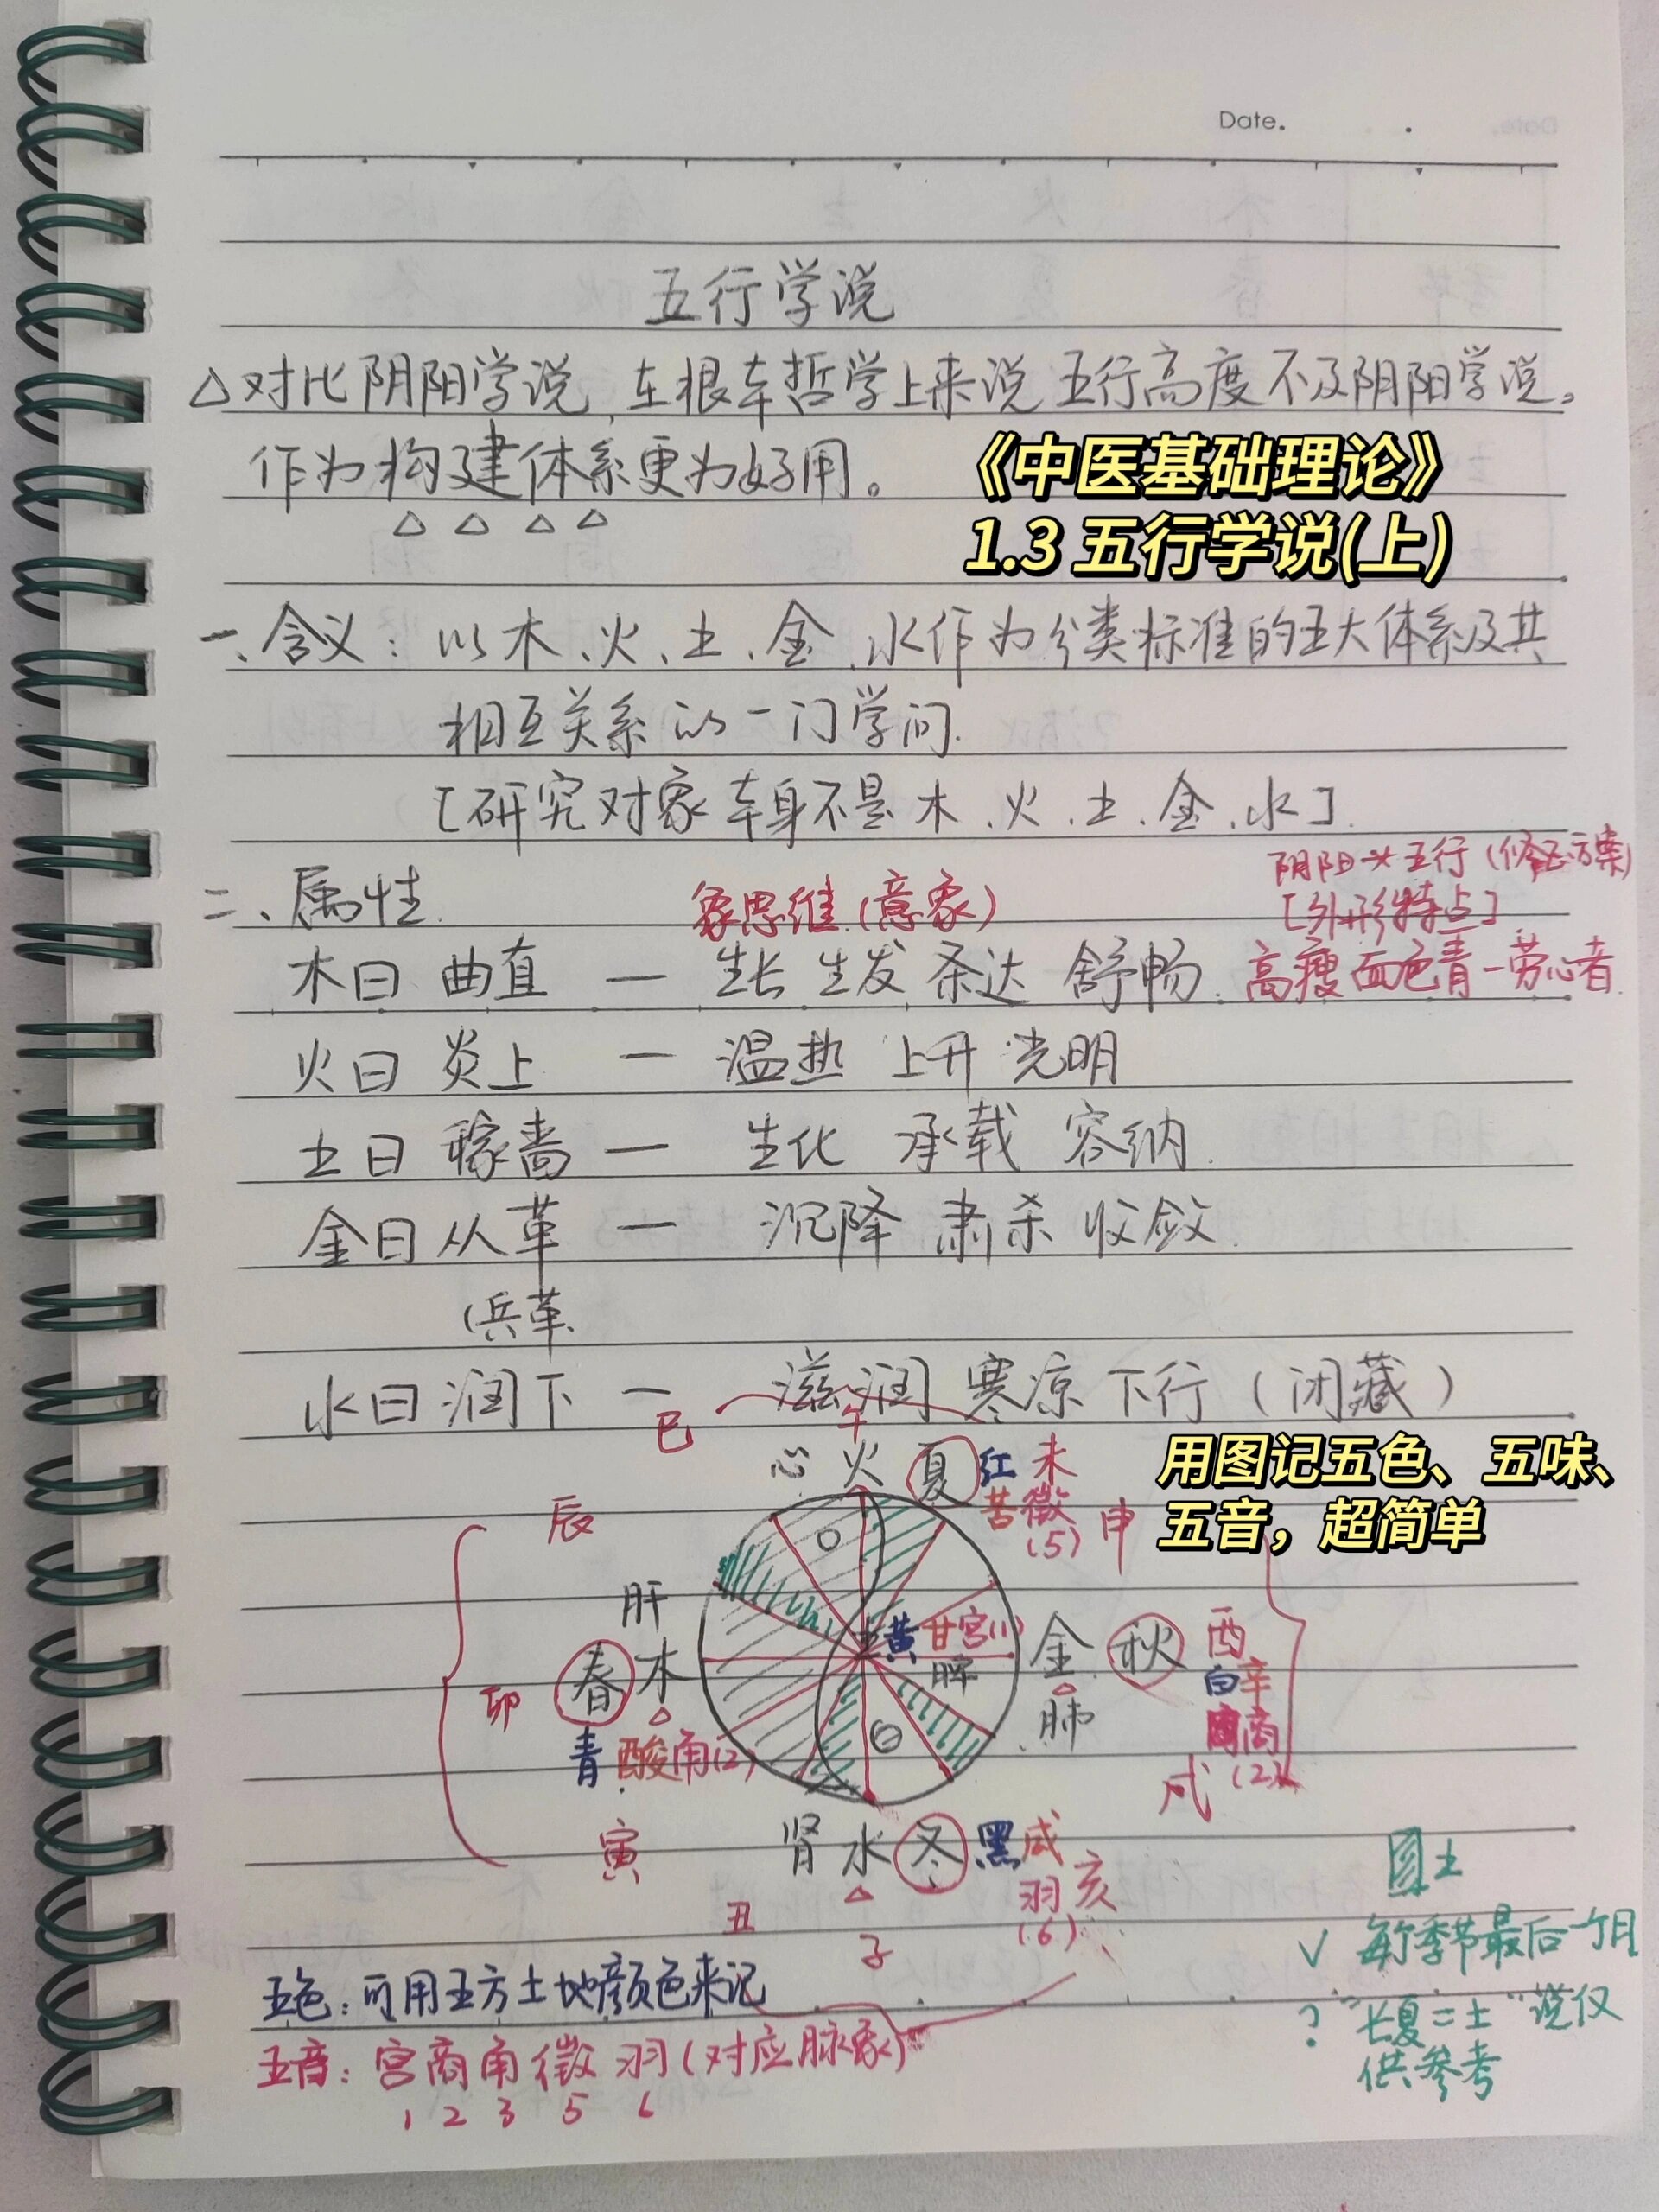 Date.
五行学说
△对比阴阳学说,在根本哲学上来说五行高度不及阴阳学说。
作为构建体系更为好用。
△ △ △ △
《中医基础理论》
1.3 五行学说(上)
一、含义：以木、火、土、金、水作为分类标准的五大体系及其
相互关系的一门学问.
[研究对象本身不是木、火、土、金、水].
阴阳→五行(修正方案)
二、属性.
象思维(意象)
[外形特点]
木曰 曲直 — 生长 生发 条达 舒畅.
高瘦面色青—劳心者.
火曰 炎上 — 温热 上升 光明
土曰 稼啬 — 生化 承载 容纳.
金曰从革 — 沉降 肃杀 收敛.
(兵革
水曰润下 — 滋润 寒凉 下行(闭藏)
巳 午
心 火 夏 红 未
苦 徵
(5) 申
用图记五色、五味、
五音，超简单
辰
肝
春 木
卯
青 酸角(2)
土黄 甘宫(1)
脾
金 秋 酉
肺
白辛
商
(2)
戌
寅
肾 水 冬 黑 咸
羽 亥
(6)
丑
子
土
√ 每个季节最后一个月
? "长夏=土"说仅
供参考
五色：可用五方土地颜色来记
五音：宫商角徵羽(对应脉象)
1 2 3 5 6